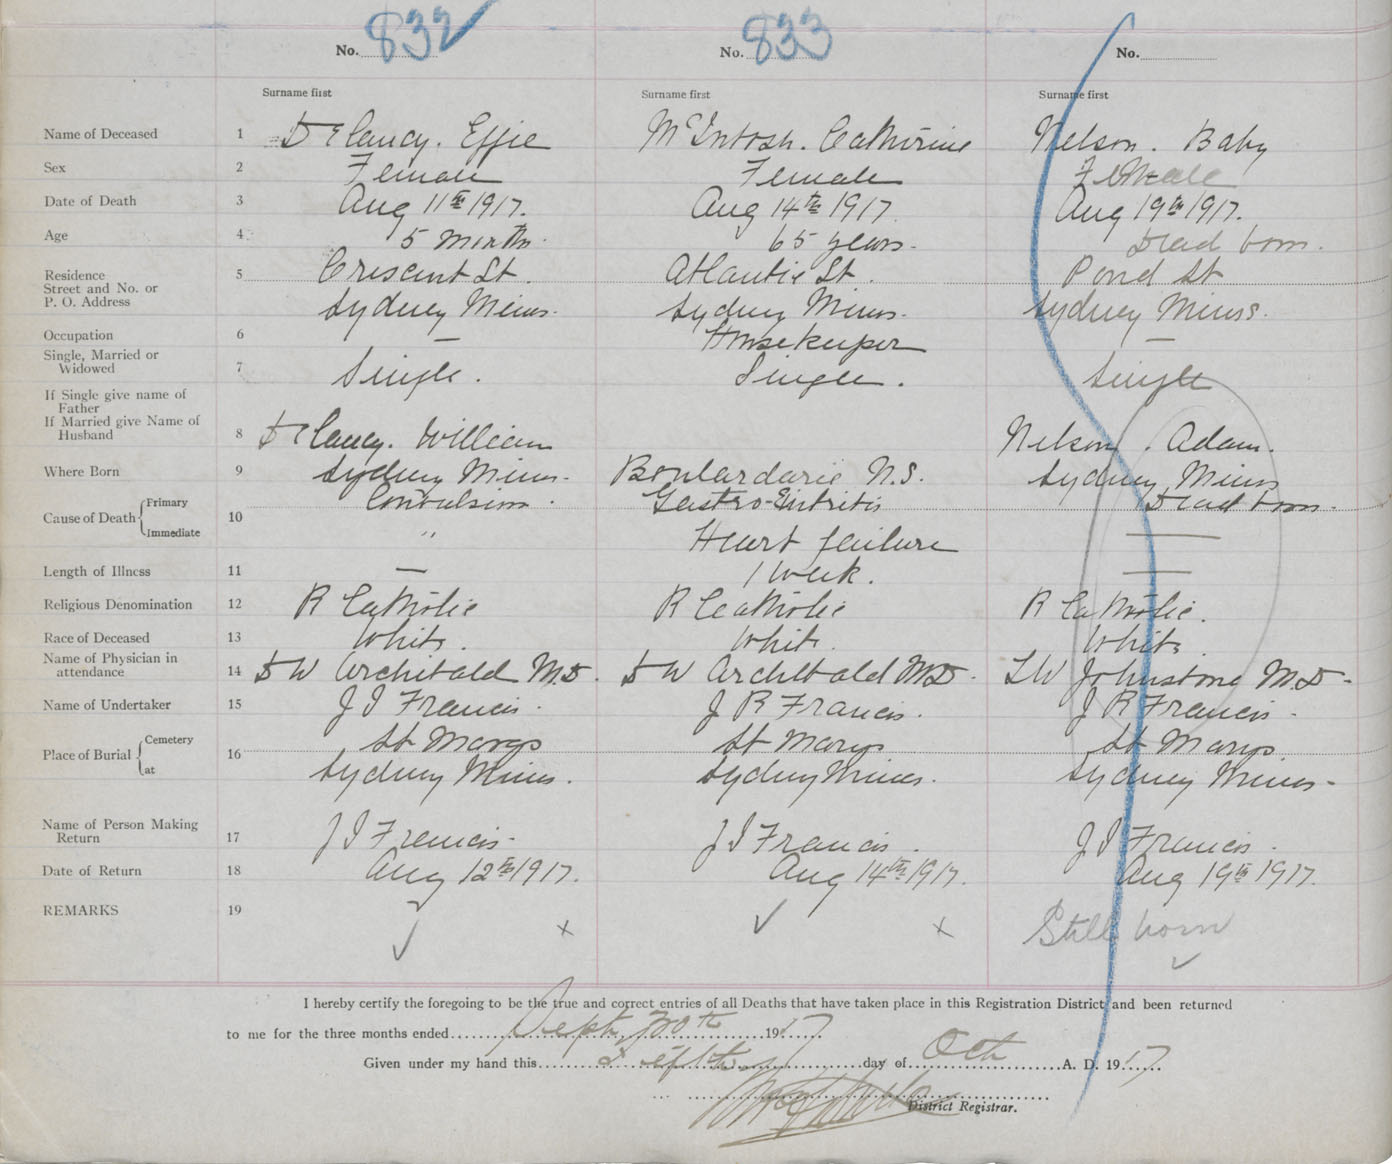 No. 832 No. 833 No.
Surname first Surname first Surname first
Name of Deceased 1 Delancy. Effie McIntosh. Catherine Nelson. Baby
Sex 2 Female Female Female
Date of Death 3 Aug 11th 1917. Aug 14th 1917 Aug 19th 1917.
Age 4 5 months. 65 years. Dead born.
Residence 5 Crescent St. Atlantic St. Pond St
Street and No. or
P. O. Address Sydney Mines. Sydney Mines. Sydney Mines.
Occupation 6 — Housekeeper —
Single, Married or
Widowed 7 Single. Single. Single
If Single give name of
Father
If Married give Name of
Husband 8 Delancy. William Nelson. Adam.
Where Born 9 Sydney Mines. Boulardarie N.S. Sydney Mines
Cause of Death Primary 10 Convulsions. Gastro-Entritis Dead born.
Immediate " Heart failure —
Length of Illness 11 — 1 week. —
Religious Denomination 12 R Catholic R Catholic R Catholic.
Race of Deceased 13 White. White. White.
Name of Physician in
attendance 14 D W Archibald M.D. D W Archibald M.D. L W Johnstone M.D.
Name of Undertaker 15 J J Francis. J R Francis. J R Francis.
Place of Burial Cemetery 16 St Marys St Marys St Marys
at Sydney Mines. Sydney Mines. Sydney Mines.
Name of Person Making
Return 17 J J Francis. J J Francis. J J Francis.
Date of Return 18 Aug 12th 1917. Aug 14th 1917. Aug 19th 1917.
REMARKS 19 Still born
I hereby certify the foregoing to be the true and correct entries of all Deaths that have taken place in this Registration District and been returned
to me for the three months ended Sept. 30th 1917
Given under my hand this day of Oct A. D. 1917
District Registrar.